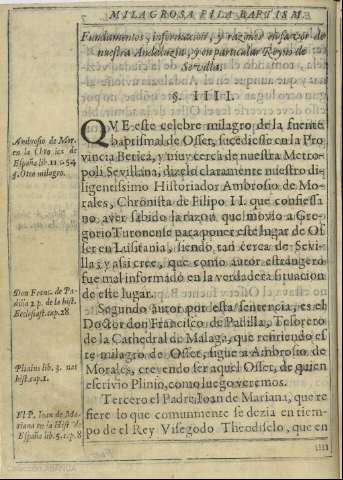 MILAGROSA PILA BAPTISM.
Fundamentos, informacion, y razones en favor de
nuestra Andaluzia, y en particular Reyno de
Sevilla.
§. IIII.
QVE este celebre milagro de la fuente
baptismal de Osser, sucediesse en la Pro
vincia Betica, y muy cerca de nuestra Metro-
poli Sevillana, dizelo claramente nuestro di-
ligentissimo Historiador Ambrosio de Mo-
rales, Chronista de Filipo II. que confiessa
no aver sabido la razon que movio a Gre-
gorio Turonense para poner este lugar de Os
ser en Lusitania, siendo tan cerca de Sevi-
lla; y assi cree, que como autor estrangero
fue mal informado en la verdadera situacion
de este lugar.
Segundo autor por esta sentencia, es el
Doctor don Francisco de Padilla, Tesorero
de la Cathedral de Malaga, que refiriendo es
te milagro de Osser, sigue a Ambrosio de
Morales, creyendo ser aquel Osset, de quien
escrivio Plinio, como luego veremos.
Tercero el Padre Joan de Mariana, que re
fiere lo que comunmente se dezia en tiem-
po de el Rey Visegodo Theodiselo, que en
Ambrosio de Mor.
en la Chro. ica de
España lib. 11. c. 54
§. Otro milagro.
Don Franc. de Pa-
dilla 2. p. de la hist.
Ecclesiast. cap. 28
Plinius lib. 3. nat
hist. cap. 1.
El P. Joan de Ma-
riana en la Hist. de
España lib. 5. cap. 8
Colección ABANUA